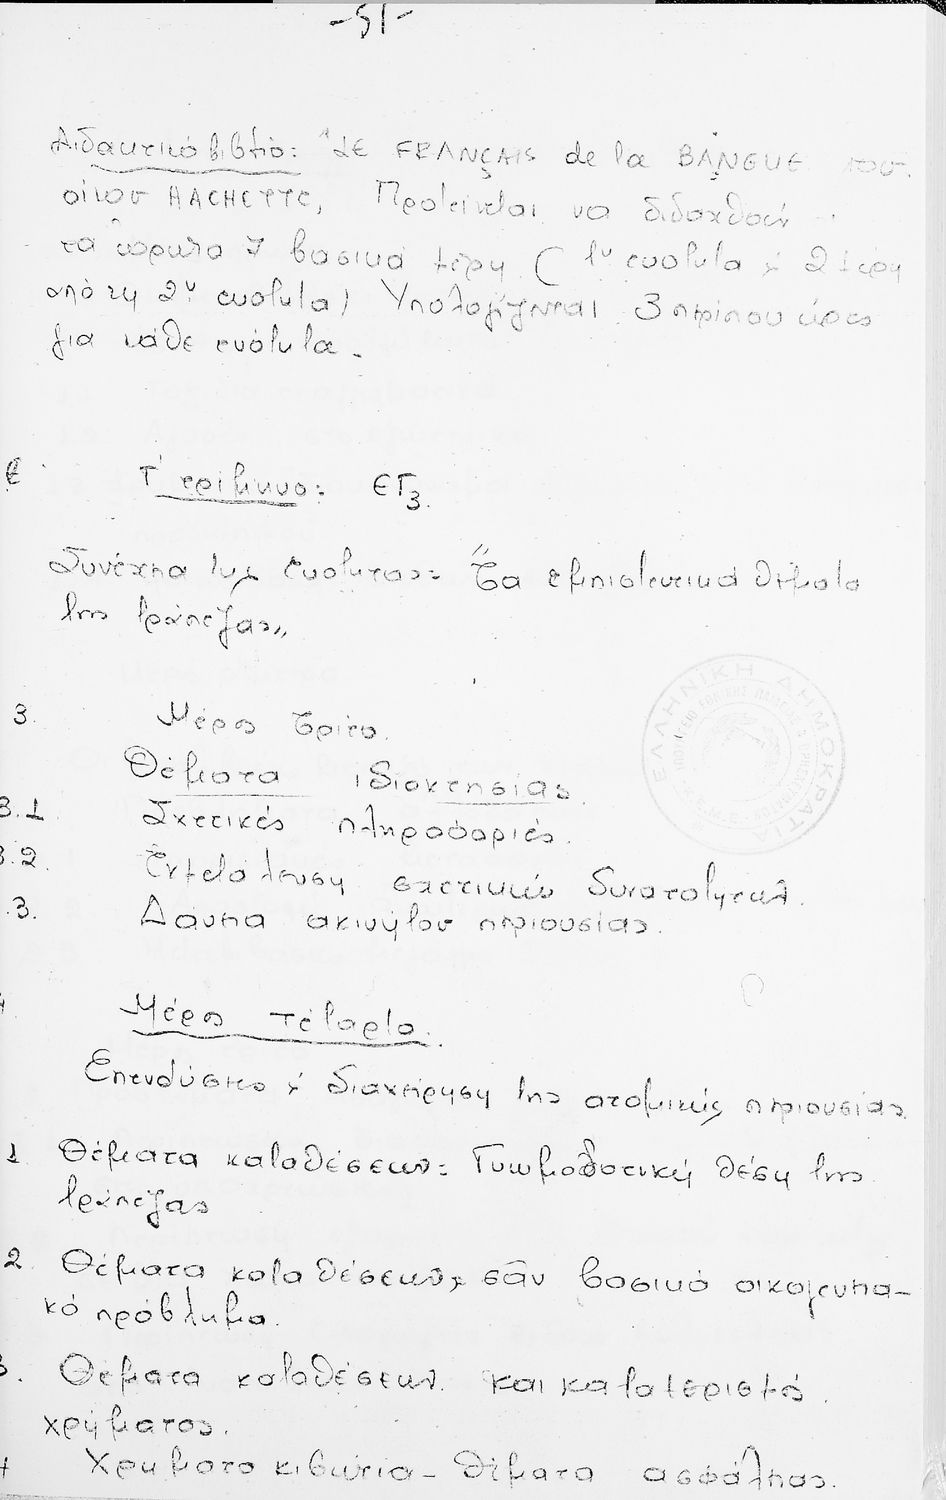 -51-
Διδακτικό βιβλίο: "LE FRANÇAIS de la BANQUE του
οίκου HACHETTE, Προτείνεται να διδαχθούν
τα πρώτα 7 βασικά μέρη (1η ενότητα & 2 μέρη
από τη 2η ενότητα) Υπολογίζονται 3 περίπου ώρες
για κάθε ενότητα.
Ε Γ' τρίμηνο: ΕΓ3.
Συνέχεια της ενότητας: "Τα εμπιστευτικά θέματα
της τράπεζας"
3. Μέρος τρίτο.
Θέματα ιδιοκτησίας
3.1 Σχετικές πληροφορίες.
3.2. σχετικών
.3. Δάνεια ακινήτου περιουσίας.
Μέρος τέταρτο.
Επενδύσεις & διαχείρηση της ατομικής περιουσίας
1 Θέματα καταθέσεων: Γνωμοδοτική θέση της
τράπεζας
2. Θέματα καταθέσεων, σαν βασικό οικογενεια-
κό πρόβλημα.
3. Θέματα καταθέσεων και καταμερισμό
χρήματος.
4 Χρηματοκιβώτια - θέματα ασφάλειας.
ΕΛΛΗΝΙΚΗ ΔΗΜΟΚΡΑΤΙΑ